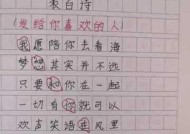 表白诗
(发给你喜欢的人)
我愿陪你去看海
梦想其实并不远
只要和你在一起
一切自 可以
欢声笑语 风里